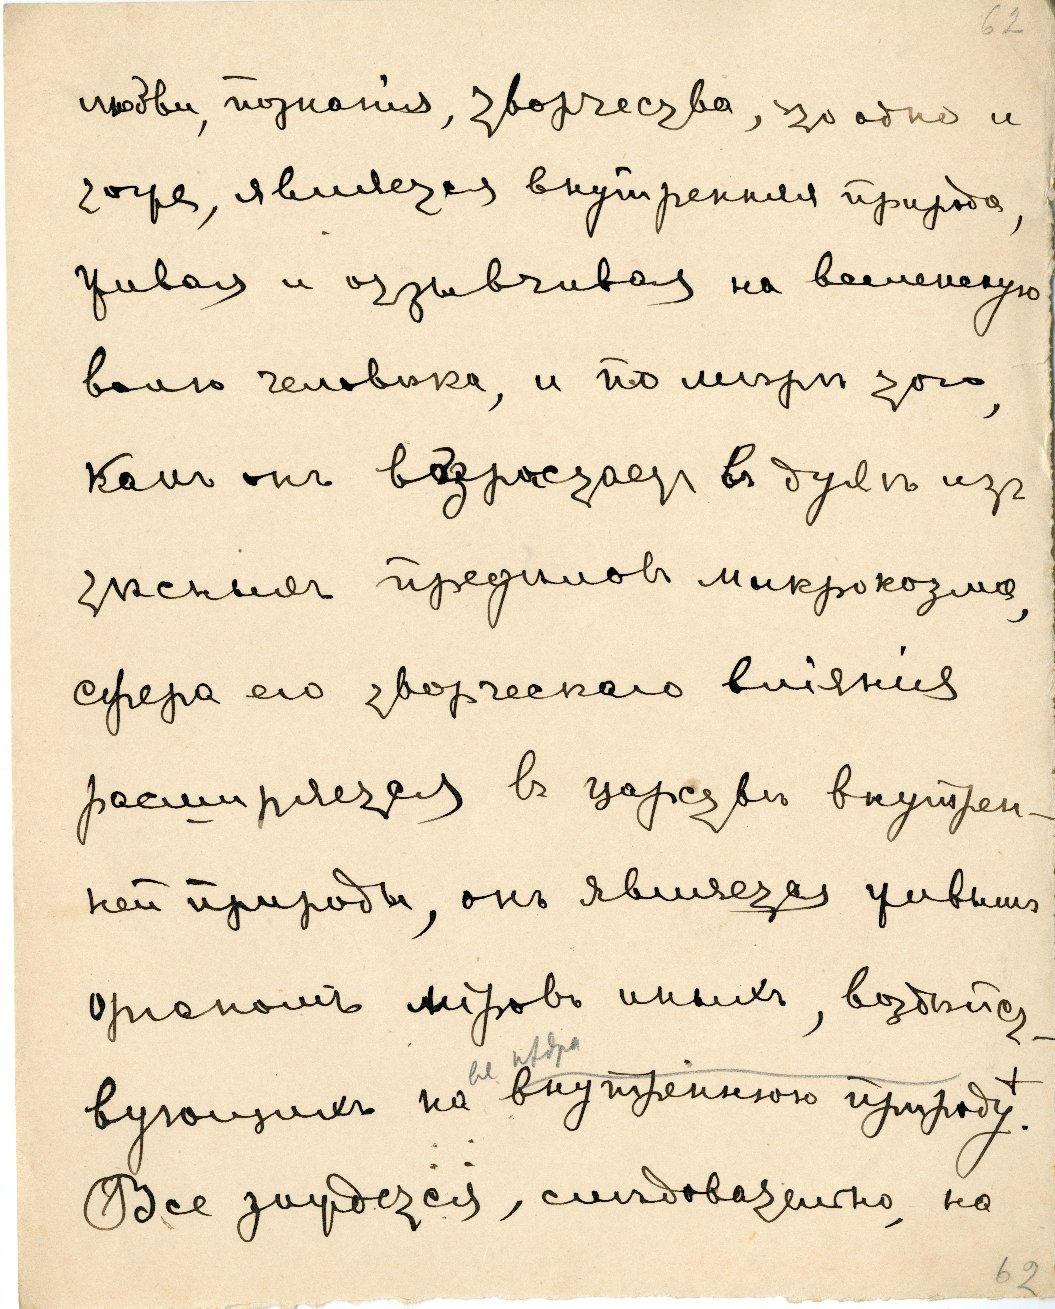 62
любви, познанія, творчества, то одно и
тоже, является внутренняя природа,
живая и отзывчивая на вселенскую
волю человѣка, и по мѣрѣ того,
какъ онъ возрастаетъ въ духѣ изъ
тѣсныхъ предѣловъ микрокозма,
сфера его творческаго вліянія
расширяется въ царствѣ внутрен-
ней природы, онъ является живымъ
органомъ міровъ иныхъ, воздѣйст-
ея нѣдра
вующихъ на внутреннюю природу+.
Все зиждется, слѣдовательно, на
62